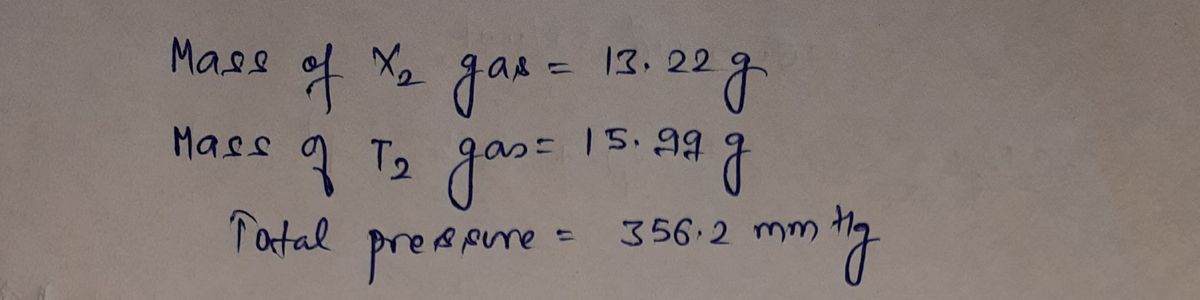 Mass of X₂ gas = 13.22 g
Mass of T₂ gas = 15.99 g
Total pressure = 356.2 mm Hg